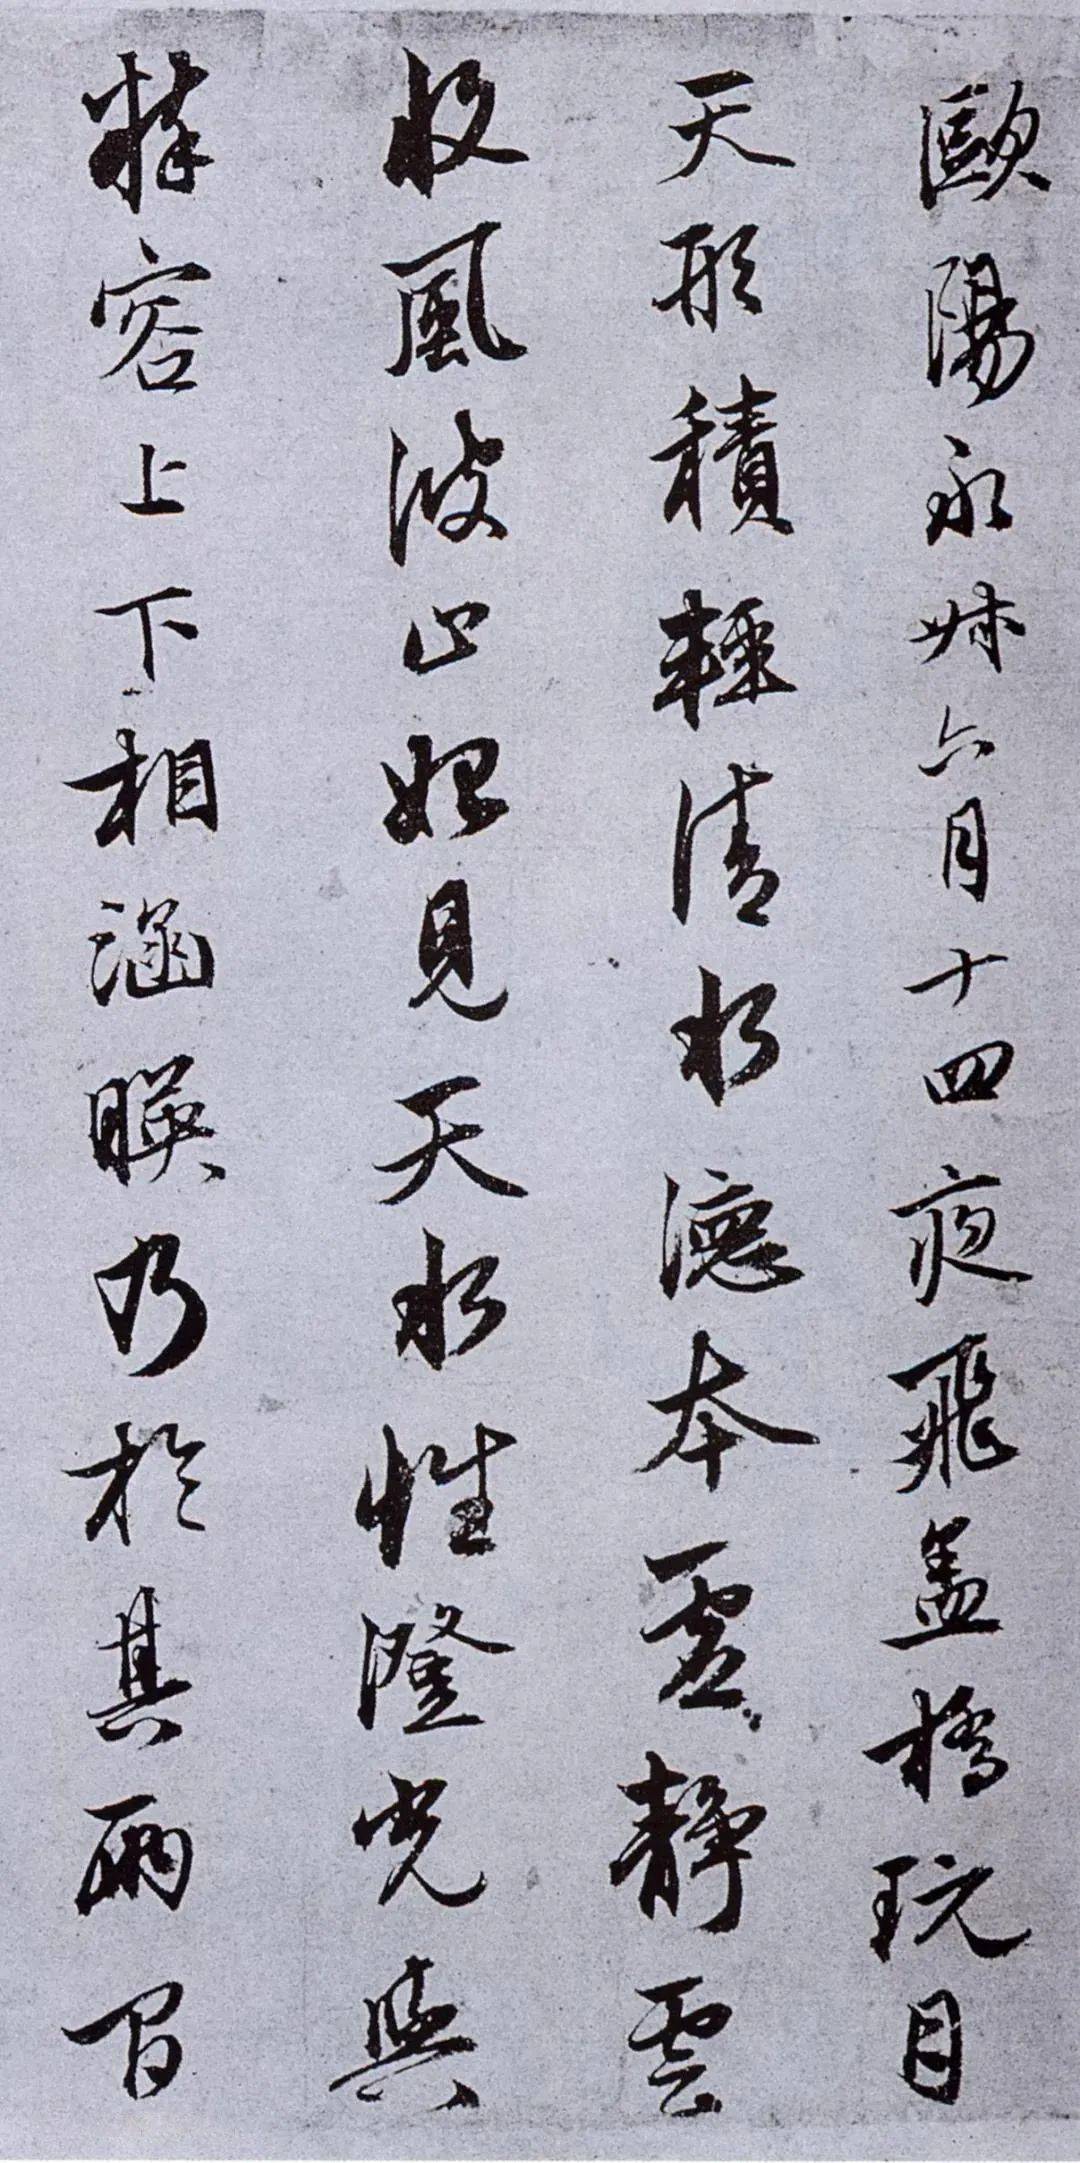 歐陽永叔六月十四夜飛蓋橋玩月
天形積輕清水德本虛靜雲
收風波止始見天水性澄光與
粹容上下相涵映乃於其兩間